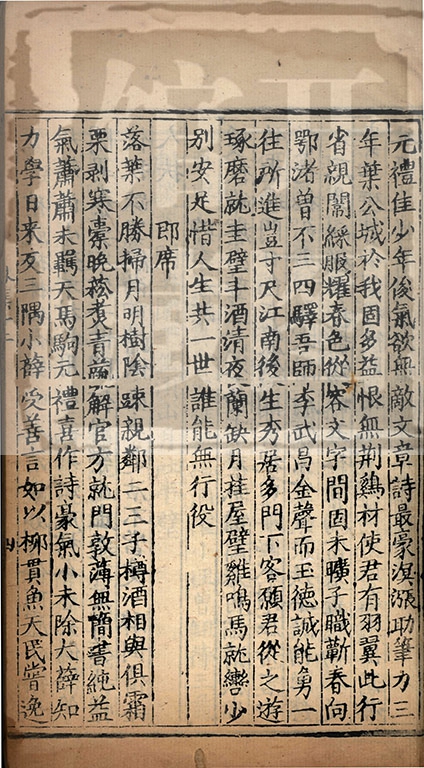 元禮佳少年俊氣欲無敵文章詩最豪溟漲助筆力三
年葉公城於我固多益恨無荆鷄材使君有羽翼此行
省親闈綵服耀春色從容文字間固未曠子職蘄春向
鄂渚曾不三四驛吾師李武昌金聲而玉德誠能勇一
往所進豈寸尺江南後生秀居多門下客願君從之遊
琢磨就圭璧斗酒清夜闌缺月挂屋壁雞鳴馬就轡少
別安足惜人生共一世誰能無行役
即席
落葉不勝掃月明樹陰踈親鄰二三子樽酒相與俱霜
栗剥寒橐晚菘煑青蔬解官方就門敦薄無簡書純益
氣蕭蕭未羈天馬駒元禮喜作詩豪氣小未除大薛知
力學日来反三隅小薛受善言如以柳貫魚天民嘗逸